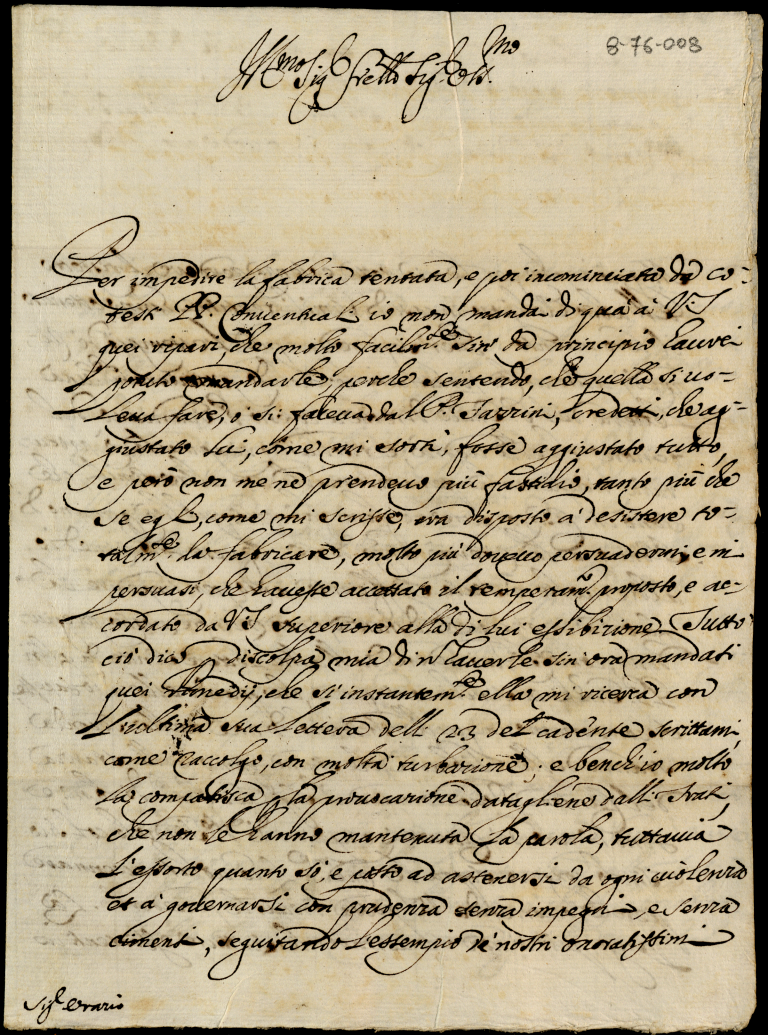 8-76-008
Ill.mo Sig.r frello Sig.r Oss.mo
Per impedire la fabrica tentata, e poi incominciata da co-
testi PP. Conventuali io non mandai di qua à V.S
quei ripari, che molto facilm.te sin da principio haurei
potuto mandarle, perche sentendo, che quella si uo-
leua fare, ò si faceua dal P. Tazzini, credetti, che ag-
giustato lui, come mi sortì, fosse aggiustato tutto,
e però non me ne prendeuo più fastidio, tanto più che
se egli, come mi scrisse, era disposto à desistere to-
talm.te la fabricare, molto più doueuo persuadermi, e mi
persuasi, che hauesse accettato il temperam.to proposto, e ac-
cordato da V.S superiore alla di lui essibizione. Tutto
ciò dico p discolpa mia di nō hauerle sin' ora mandati
quei rimedij, che sì instantem.te ella mi ricerca con
l'ultima sua lettera dell 23 del cadente scrittami,
come raccolgo, con molta turbazione; e bench'io molto
la compatisca p la prouocazione datagliene dalli Frati,
che non le hanno mantenuta la parola, tuttauia
l'essorto quanto sò, e posso ad astenersi da ogni uiolenza
et à gouernarsi con prudenza senza impegni, e senza
cimenti, seguitando l'essempio de' nostri onoratissimi
Sig.r Orazio